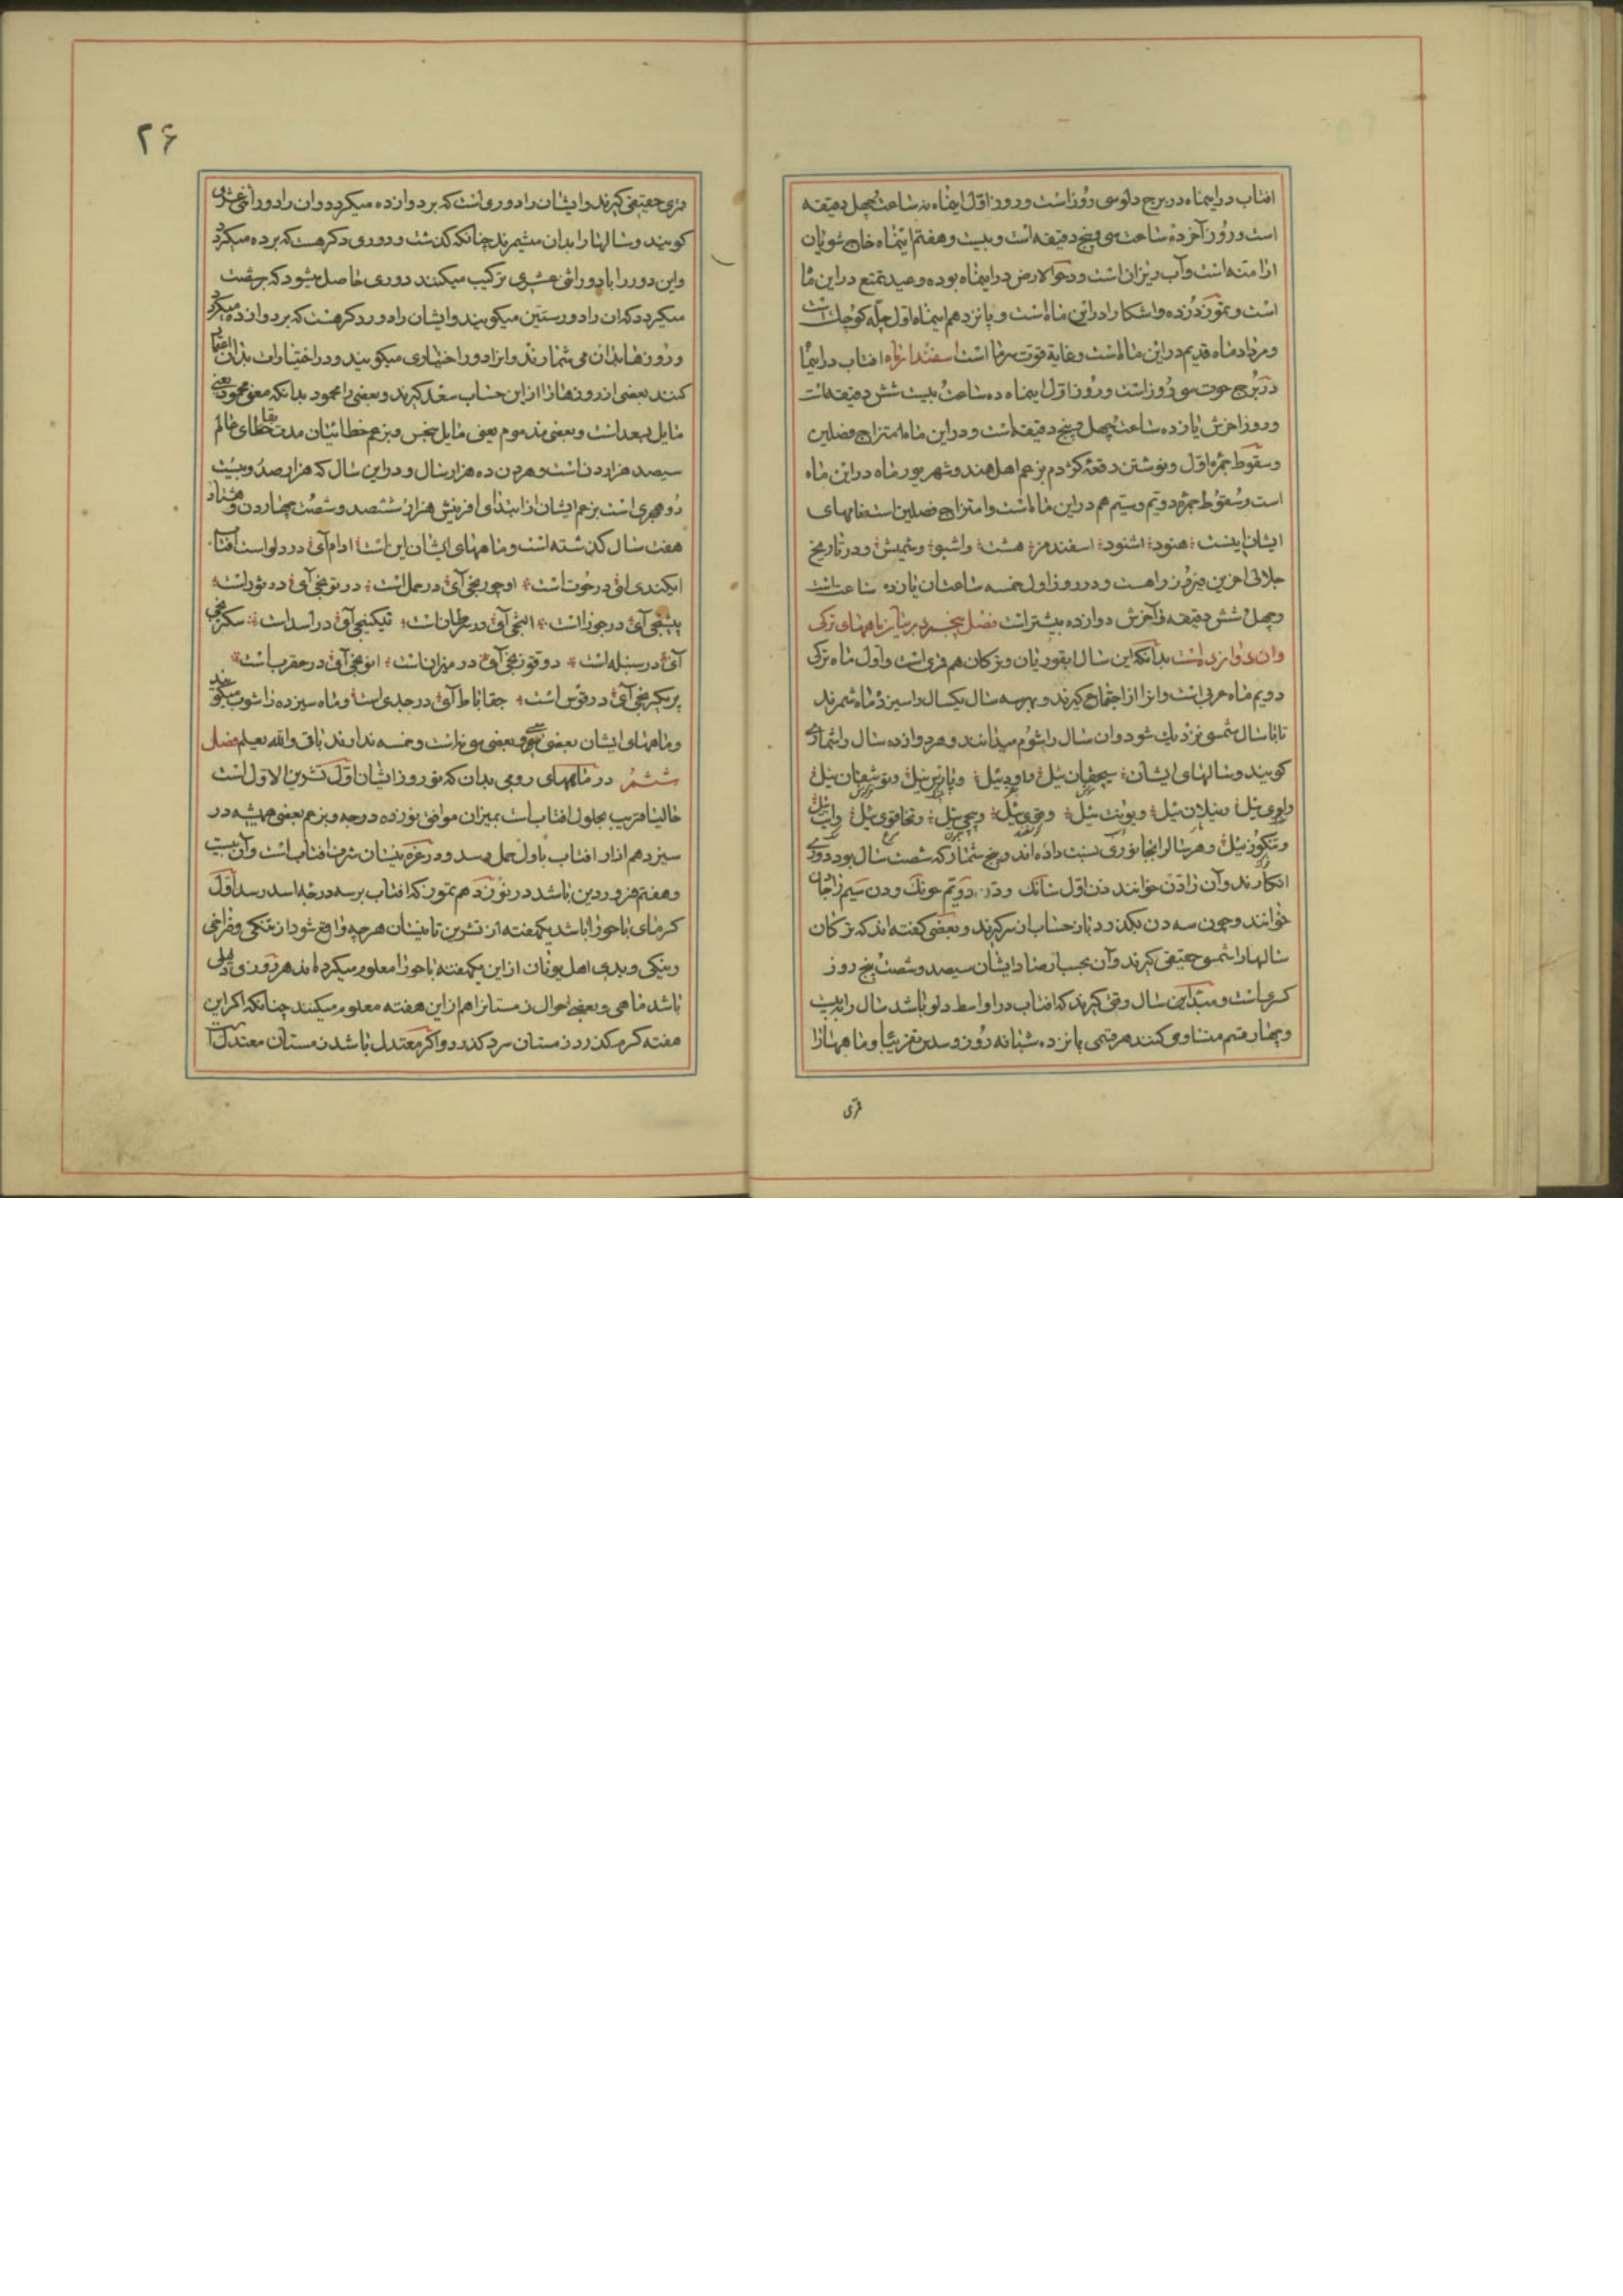 افتاب در اینماه در برج دلو سی روز است و روز اول اینماه نه ساعت چهل دقیقه
است و روز آخر ده ساعت سی و پنج دقیقه است و بیست و هفتم اینماه خاج شویان
ارامنه است و آب ریزان است و دحو الارض در اینماه بوده و عید تمتع در این ما
است و تموز دزده و اشکارا در این ماه است و پانزدهم اینماه اول چله کوچک است
و مرداد ماه قدیم در این ماه است و غایة قوت سرما است اسفندار ماه افتاب در اینما
در برج حوت سی روز است و روز اول اینماه ده ساعت بیست شش دقیقه است
و روز اخرش یازده ساعت چهل و پنج دقیقه است و در این ماه امتزاج فصلین
و سقوط جمره اول و نوشتن رقعه کژدم بزعم اهل هند و شهریور ماه در این ماه
است و سقوط جمره دویم و سیم هم در این ماه است و امتزاج فصلین است نامهای
ایشان اینست هنود اشنود اسفندمز هشت و اشبو و شمیش و در تاریخ
جلالی اخرین فیروز راهست و در روز اول خمسه ساعتان یازده ساعت است
و چهل شش دقیقه و آخرش دوازده بیشتر است فصل پنجم در بیان ماههای ترکی
و ان دوازده است بدانکه این سال ایغوریان و ترکان هم قمری است و اول ماه ترکی
دویم ماه عربی است و انرا از اجتماع گیرند و بهر سه سال یکسال را سیزده ماه شمرند
تا با سال شمسی نزدیک شود و ان سال را شوم میدانند و هر دوازده سال را شماری
کویند و سالهای ایشان سیچقان ئیل و اود ئیل و پارس ئیل و توشقان ئیل
و لوی ئیل و ییلان ئیل و یونت ئیل و قوی ئیل و پیچی ئیل و تخاقوی ئیل و ایت ئیل
و تنکوز ئیل و هر سالرا بجانوری نسبت داده اند و پنج شمار که شصت سال بود دوری
انکارند و آن را دن خوانند دن اول شانک و دن دویم جونک و دن سیم را خان
خوانند و چون سه دن بکذرد باز حساب از سر کیرند و بعضی کفته اند که ترکان
سالها را شمسی حقیقی کیرند و آن بحساب رصد ایشان سیصد و شصت پنج روز
کسری است و مبتدای سال وقتی کیرند که افتاب در اواسط دلو باشد سال را به بیست
و چهار قسم متساوی کنند هر قسمی پانزده شبانه روز و سدس تقریبا و ماهها را
قمری
۲۶
قمری حقیقی کیرند و ایشان را دوری است که بر دوازده میکردد و ان را دور اثنی عشری
کویند و سالها را بدان میشمرند چنانکه کذشت و دوری دکر هست که بر ده میکردد
و این دور را با دور اثنی عشری ترکیب میکنند دوری حاصل میشود که بر شصت
میکردد که ان را دور ستین میکویند و ایشان را دور دکر هست که بر دوازده میکردد
و روزها بدان می شمارند و انرا دور اختیاری میکویند و در اختیارات بدان اعتبار
کنند بعضی از روزها را از این حساب سعد کیرند و بعضی را محمود بدانکه معنی محمود یعنی
مایل بسعد است و بعضی مذموم یعنی مایل بنحس و بزعم خطائیان مدت بقای عالم
سیصد هزار دن است و هر دن ده هزار سال و در این سال که هزار صد و بیست
دو هجری است بزعم ایشان از ابتدای افرینش هزار ششصد و شصت چهار دن و هشتاد
هفت سال کذشته است و ماههای ایشان این است ارام آی در دلو است افتاب
ایکندی آی در حوت است اوچونج آی در حمل است درتونج آی در ثور است
بیشنج آی در جوزا است التنج آی در سرطان است تیکینج آی در اسد است سکزنج
آی در سنبله است دوقوزنج آی در میزان است اونونج آی در عقرب است
بریکرمنج آی در قوس است جقاباط آی در جدی است و ماه سیزده را شون میکویند
و ماههای ایشان بعضی سی و بعضی سی نه است و خمسه ندارند باقی والله یعلم فصل
ششم در ماههای رومی بدان که نوروز ایشان اول تشرین الاول است
حالیا قریب بحلول افتاب است بمیزان موافق نوزده درجه و بزعم بعضی همیشه در
سیزدهم اذار افتاب باول حمل رسد و در غره نیسان شرف افتاب است و آن بیست
و هفتم فروردین باشد در نوزدهم تموز که افتاب برسد درجه اسد رسد اول
کرمای باحورا باشد یکهفته از تشرین تا نیسان هر چه واقع شود از تنکی و فراخی
و نیکی و بدی اهل یونان از این یکهفته باحورا معلوم میکرده اند هر روزی دلیل
باشد ماهی و بعضی احوال زمستانرا هم از این هفته معلوم میکنند چنانکه اکر این
هفته کرم کذرد زمستان سرد کذرد و اکر معتدل باشد زمستان معتدل